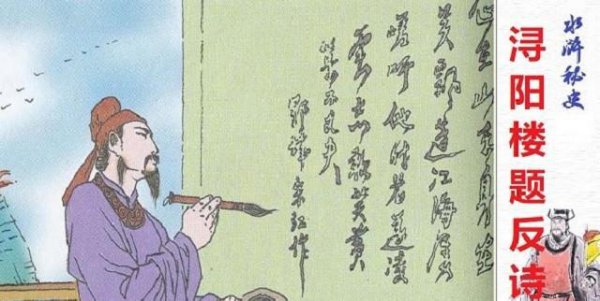 水浒秘史
浔阳楼题反诗
心在山东身在
吴飘蓬江海漫
嗟吁他时若遂凌
云志敢笑黄
巢不丈夫
郓城宋江作